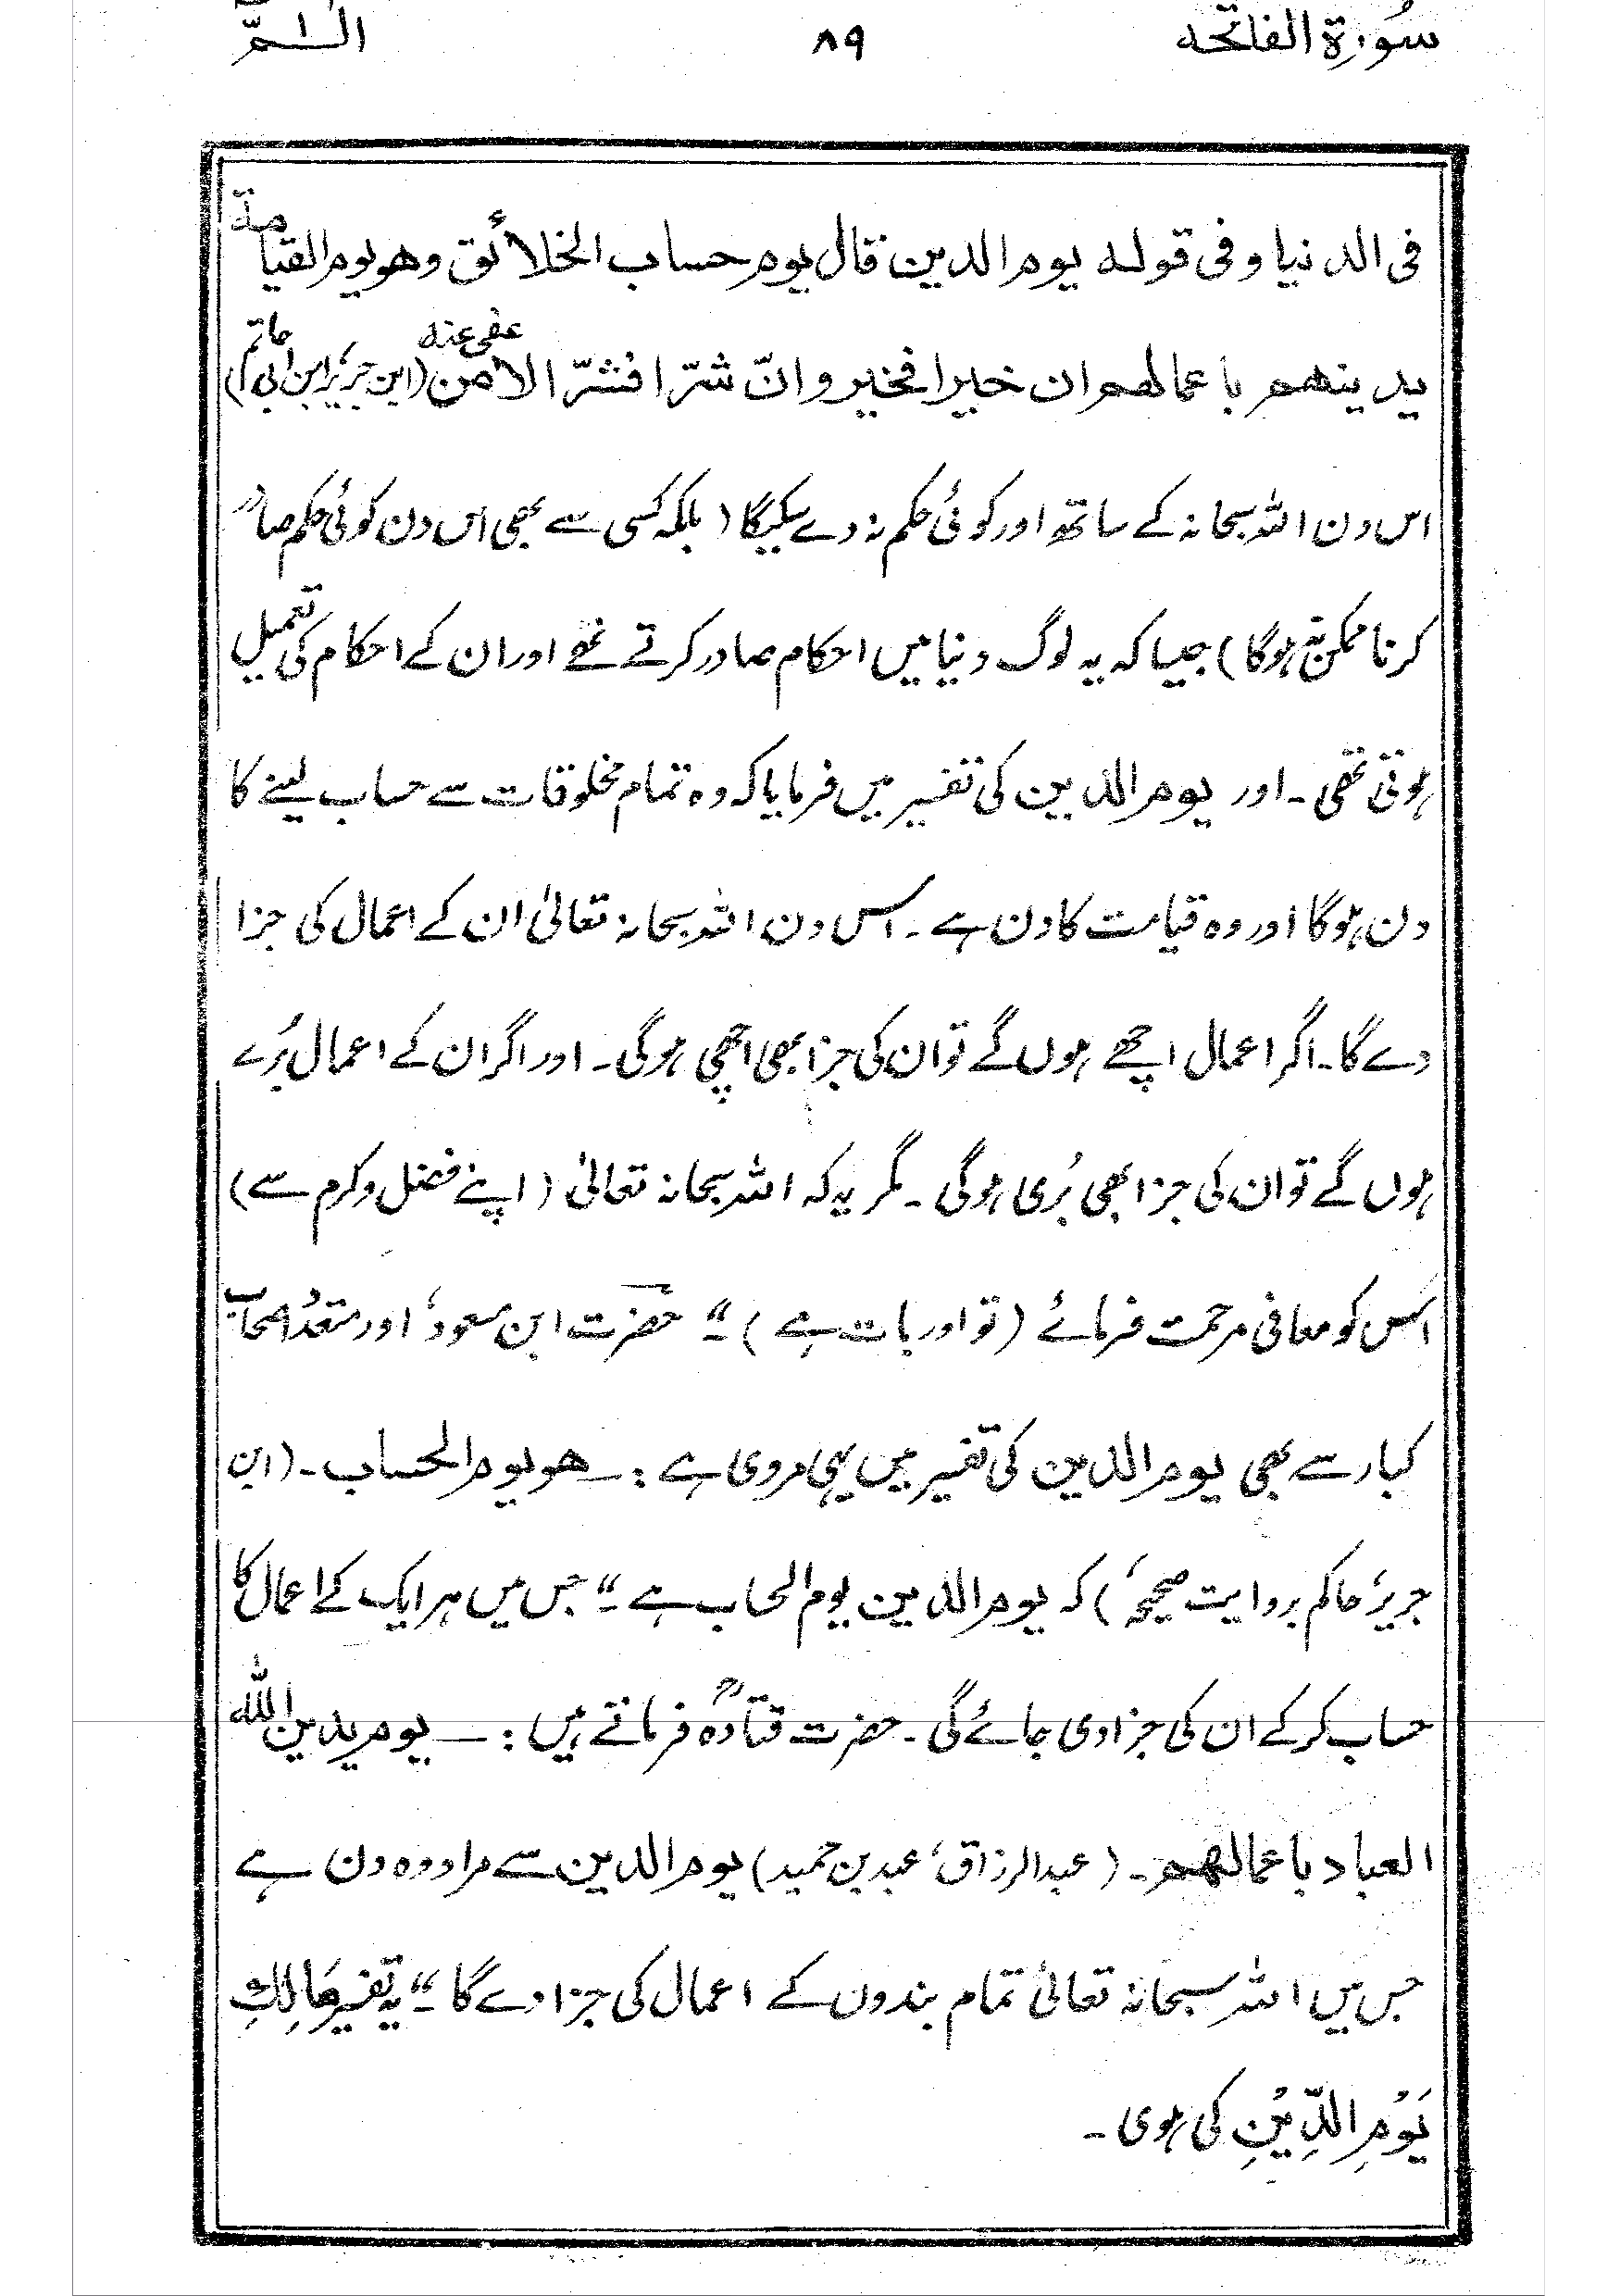 سُورۃ الفاتحہ ۸۹ الٓمّٓ
فی الدنیا وفی قولہ یوم الدین قال یوم حساب الخلائق وھو یوم القیامۃ
یدینھم باعمالھم ان خیرا فخیر وانّ شرّا فشرّ الا من عفی عنہ (ابن جریرؒ ابن ابی حاتم)
اس دن اللہ سبحانہ کے ساتھ اور کوئی حکم نہ دے سکیگا (بلکہ کسی سے بھی اس دن کوئی حکم صادر
کرنا ممکن نہ ہوگا) جیسا کہ یہ لوگ دنیا میں احکام صادر کرتے تھے اور ان کے احکام کی تعمیل
ہوتی تھی۔ اور یوم الدین کی تفسیر میں فرمایا کہ وہ تمام مخلوقات سے حساب لینے کا
دن ہوگا اور وہ قیامت کا دن ہے۔ اس دن اللہ سبحانہ تعالیٰ ان کے اعمال کی جزا
دے گا۔ اگر اعمال اچھے ہوں گے تو ان کی جزا بھی اچھی ہوگی۔ اور اگر ان کے اعمال بُرے
ہوں گے تو ان کی جزا بھی بُری ہوگی۔ مگر یہ کہ اللہ سبحانہ تعالیٰ (اپنے فضل و کرم سے)
اس کو معافی مرحمت فرمائے (تو اور بات ہے)۔" حضرت ابن مسعودؓ اور متعدد اصحاب
کبار سے بھی یوم الدین کی تفسیر میں یہی مروی ہے :۔ ھو یوم الحساب۔ (ابن
جریرؒ حاکم بروایت صحیحہ) کہ یوم الدین یوم الحساب ہے۔" جس میں ہر ایک کے اعمال کا
حساب کر کے ان کی جزا دی جائے گی۔ حضرت قتادہؒ فرماتے ہیں :۔ یوم یدین اللہ
العباد باعمالھم۔ (عبدالرزاق، عبد بن حمید) یوم الدین سے مراد وہ دن ہے
جس میں اللہ سبحانہ تعالیٰ تمام بندوں کے اعمال کی جزا دے گا۔" یہ تفسیر مَالِكِ
یَوْمِ الدِّیْنِ کی ہوی۔